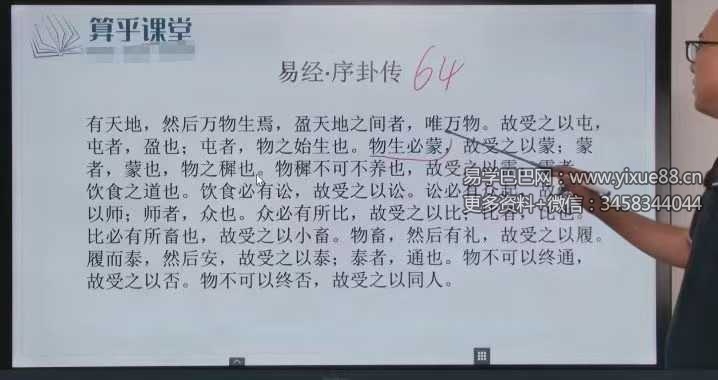 算平课堂
易经·序卦传 64
有天地，然后万物生焉，盈天地之间者，唯万物。故受之以屯，
屯者，盈也；屯者，物之始生也。物生必蒙，故受之以蒙；蒙
者，蒙也，物之穉也。物穉不可不养也，故受之以需
饮食之道也。饮食必有讼，故受之以讼。讼必
以师；师者，众也。众必有所比，故受之以比；比者，比也
比必有所畜也，故受之以小畜。物畜，然后有礼，故受之以履。
履而泰，然后安，故受之以泰；泰者，通也。物不可以终通，
故受之以否。物不可以终否，故受之以同人。
易学巴巴网：www.yixue88.cn
更多资料+微信：3458344044